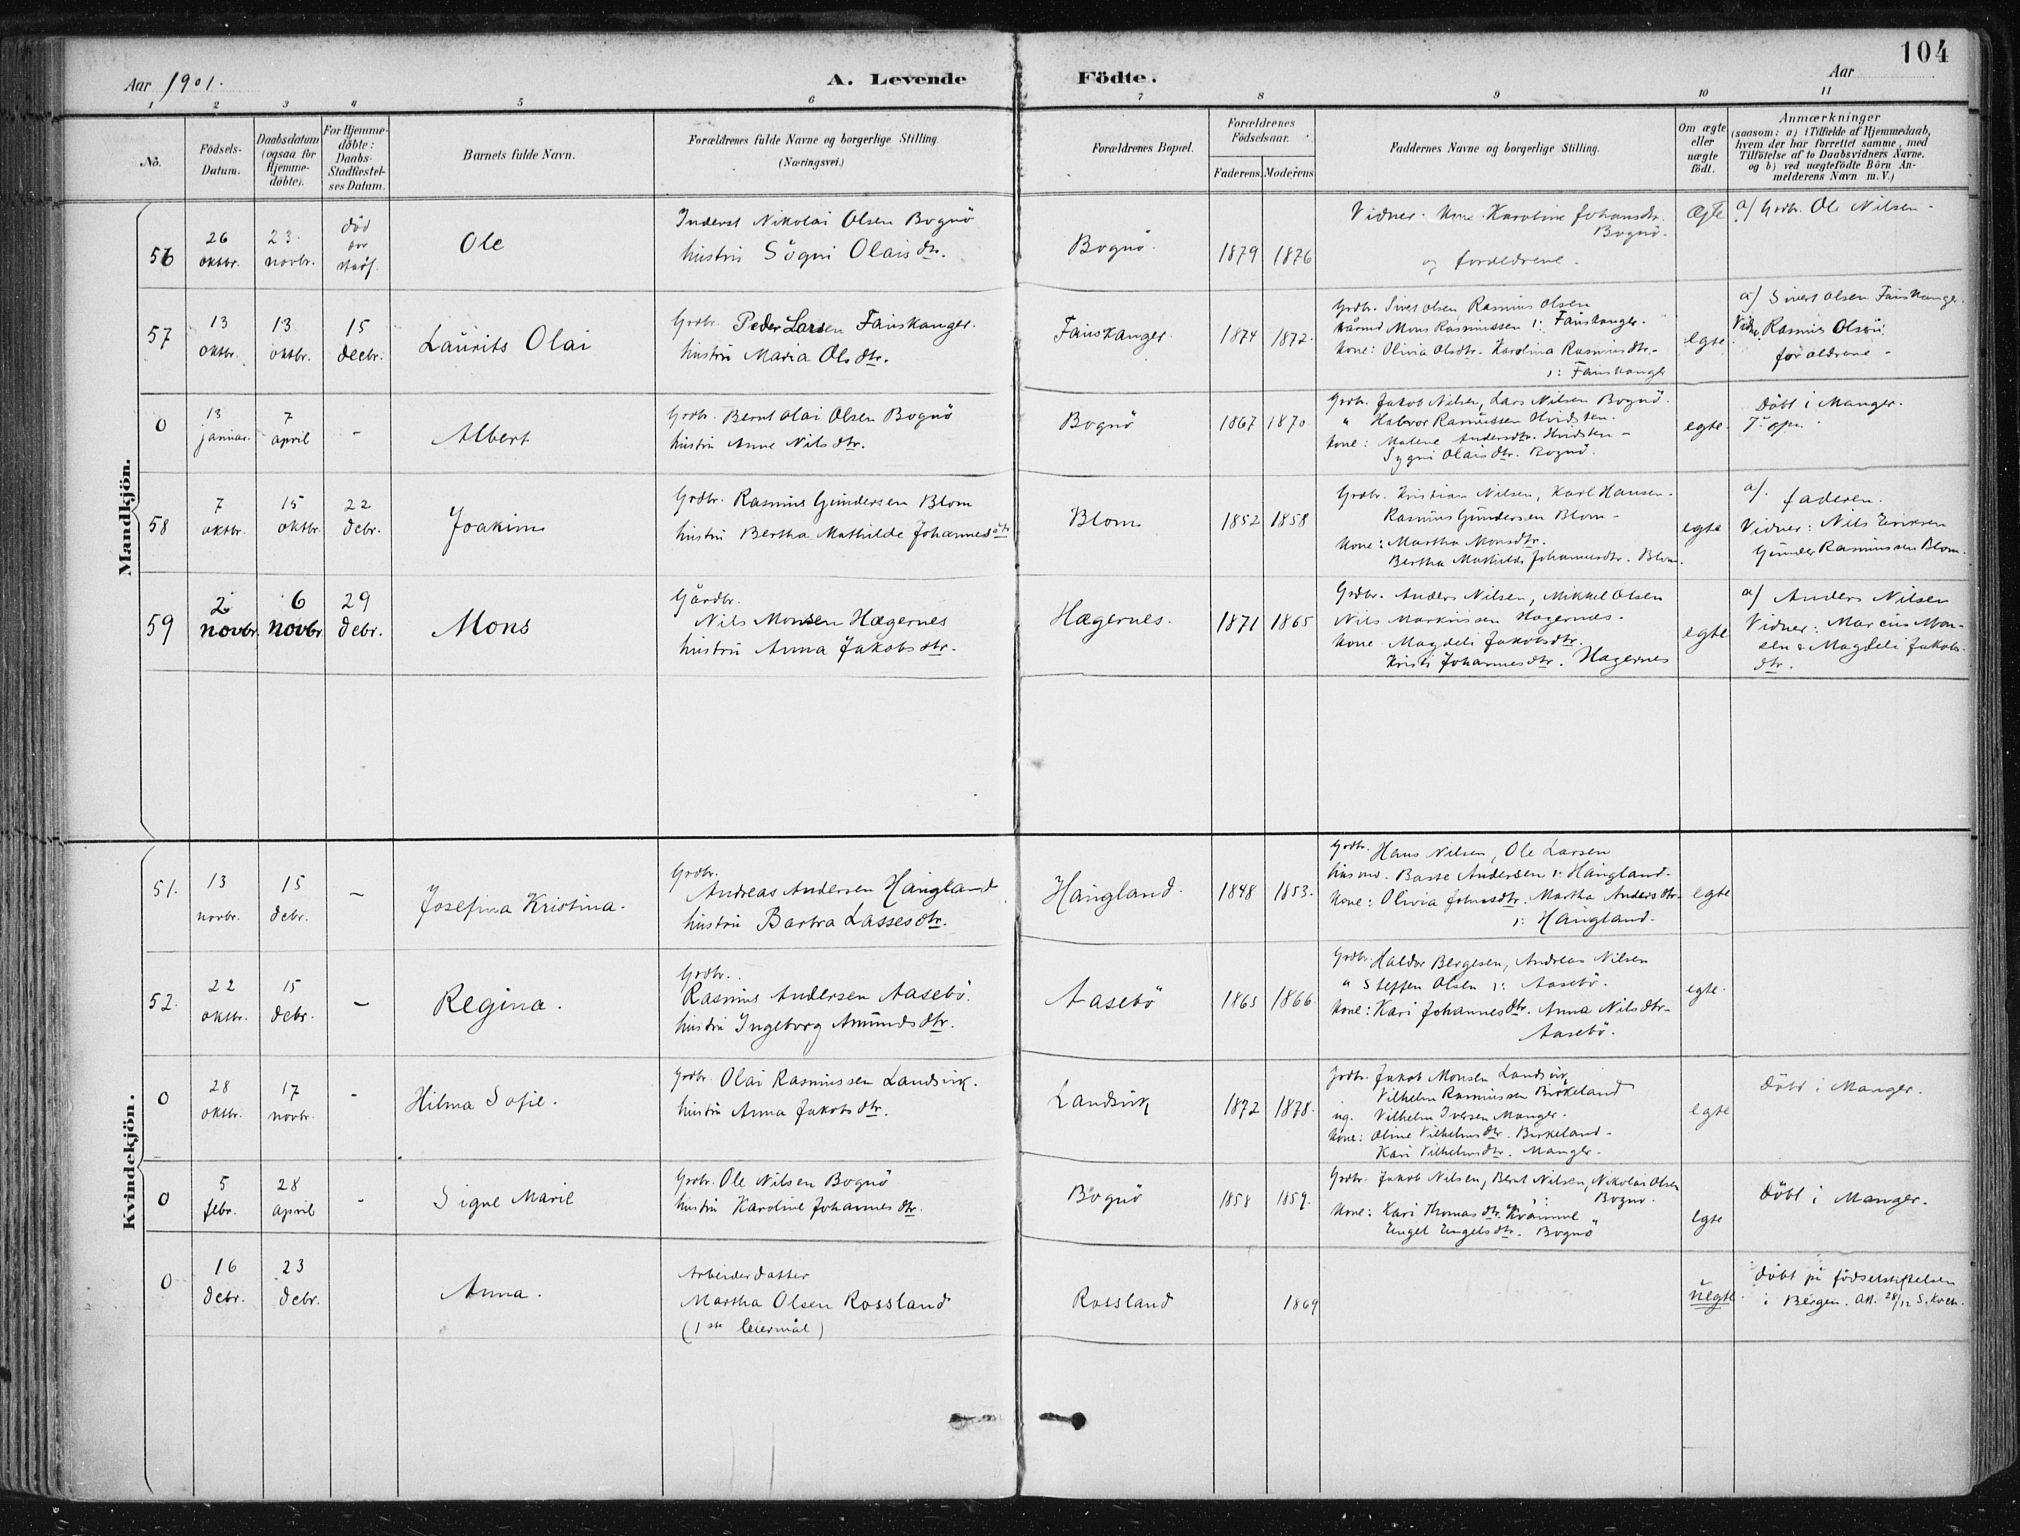 104
Aar 1901.
A. Levende Födte.
Aar
1 2 3 4 5 6 7 8 9 10 11
No.
Födsels-
Datum.
Daabsdatum
(ogsaa for
Hjemme-
döbte).
For Hjemme-
döbte:
Daabs-
Stadfæstel-
ses Datum.
Barnets fulde Navn.
Forældrenes fulde Navne og borgerlige Stilling.
(Næringsvei.)
Forældrenes Bopæl.
Forældrenes
Födselsaar.
Faderens. Moderens
Faddernes Navne og borgerlige Stilling.
Om ægte
eller
uægte
födt.
Anmærkninger
(saasom: a) i Tilfælde af Hjemmedaab,
hvem der har forrettet samme, med
Tilföielse af to Daabsvidners Navne.
og b) ved uægtefödte Börn An-
melderens Navn m. V.)
Mandkjön.
56
26
oktbr.
23.
novbr.
död
før
stadf.
Ole
Inderst Nikolai Olsen Bognö
hustru Sögni Olaisdtr.
Bognö.
1879 1876
Vidner. kone Karoline Johansdtr.
Bognö.
og forældrene.
Ægte
a/ Grdbr. Ole Nilsen -
57
13
oktbr.
13
oktbr.
15
decbr.
Laurits Olai
Grdbr. Peder Larsen Fauskanger.
hustru Maria Olsdtr.
Fauskanger.
1874 1872.
Grdbr. Sivert Olsen, Rasmus Olsen
Mons Rasmussen ɔ: Fauskanger.
kone: Olivia Olsdtr. Karolina Rasmusdtr.
ɔ: Fauskanger
egte
a/ Sivert Olsen Fauskanger.
Vidn. Rasmus Olsen
forældrene -
0
13
januar.
7
april
-
Albert
Grdbr. Bernt Olai Olsen Bognö
hustru Anne Nilsdtr.
Bognö
1867 1870
Grdbr. Jakob Nilsen, Lars Nilsen Bognö.
" Halvor Rasmussen Hvidsten.
kone: Malene Andersdtr. Hvidsten -
Sygni Olaisdtr. Bognö.
egte.
Döbt i Manger.
58
7
oktbr.
15
oktbr.
22
debr.
Joakim
Grdbr. Rasmus Gundersen Blom
hustru Bertha Mathilde Johannesdtr
Blom
1852 1858
Grdbr. Kristian Nilsen, Karl Hansen.
Rasmus Gundersen Blom -
kone: Martha Monsdtr.
Bertha Mathilde Johannesdtr. Blom.
egte
a/. faderen.
Vidner: Nils Eriksen
Gunder Rasmussen Blom.
59
2
novbr.
6
novbr
29
debr.
Mons
Gårdbr.
Nils Monsen Hægernes
hustru Anna Jakobsdtr.
Hægernes.
1871 1865
Grdbr. Anders Nilsen, Mikkel Olsen
Nils Markussen Hagernes.
kone Magdeli Jakobsdtr.
Kristi Johannesdtr. Hagernes
egte
a/ Anders Nilsen
Vidner: Marcus Mon-
sen & Magdeli Jakobs-
dtr.
Kvindekjön.
51.
13
novbr.
15
debr.
-
Josefina Kristina.
Grdbr.
Andreas Andersen Haugland
hustru Barbra Lassesdtr.
Haugland.
1848 1853.
Grdbr. Hans Nilsen, Ole Larsen
husmd. Baste Andersen ɔ: Haugland.
kone: Olivia Johnsdtr. Martha Andersdtr.
ɔ: Haugland.
egte
52.
22
oktbr.
15
debr.
-
Regina.
Grdbr.
Rasmus Andersen Aasebö.
hustru Ingeborg Amundsdtr.
Aasebö
1865 1866.
Grdbr. Haldor Bergesen, Andreas Nilsen
" Steffen Olsen ɔ: Aasebö.
kone: Kari Johannesdtr. Anna Nilsdtr.
Aasebö.
egte.
0
28
oktbr.
17
novbr.
-
Hilma Sofie.
Grdbr. Olai Rasmussen Landsvik.
hustru Anna Jakobsdtr.
Landsvik
1872 1878.
Grdbr. Jakob Monsen Landsvik,
Vilhelm Rasmussen Birkeland
ug. Vilhelm Iversen Manger.
kone: Oline Vilhelmsdtr. Birkeland.
Kari Vilhelmsdtr. Manger.
egte
Döbt i Manger.
0
5
febr.
28
april
-
Signe Marie
Grdbr. Ole Nilsen Bognö
hustru Karoline Johannesdtr.
Bognö
1858 1859.
Grdbr. Jakob Nilsen, Bernt Nilsen, Nikolai Olsen
Bognö.
kone: Kari Thomasdtr. Kvamme
Engel Engelsdtr. Bognö
egte
Döbt i Manger.
0
16
debr.
23
debr.
Anna.
Arbeiderdatter
Martha Olsen Rossland
(1ste leiermål)
Rossland
1869
uegte.
Döbt på födselstiftelsen
i Bergen. Att. 28/12 S. Koch.